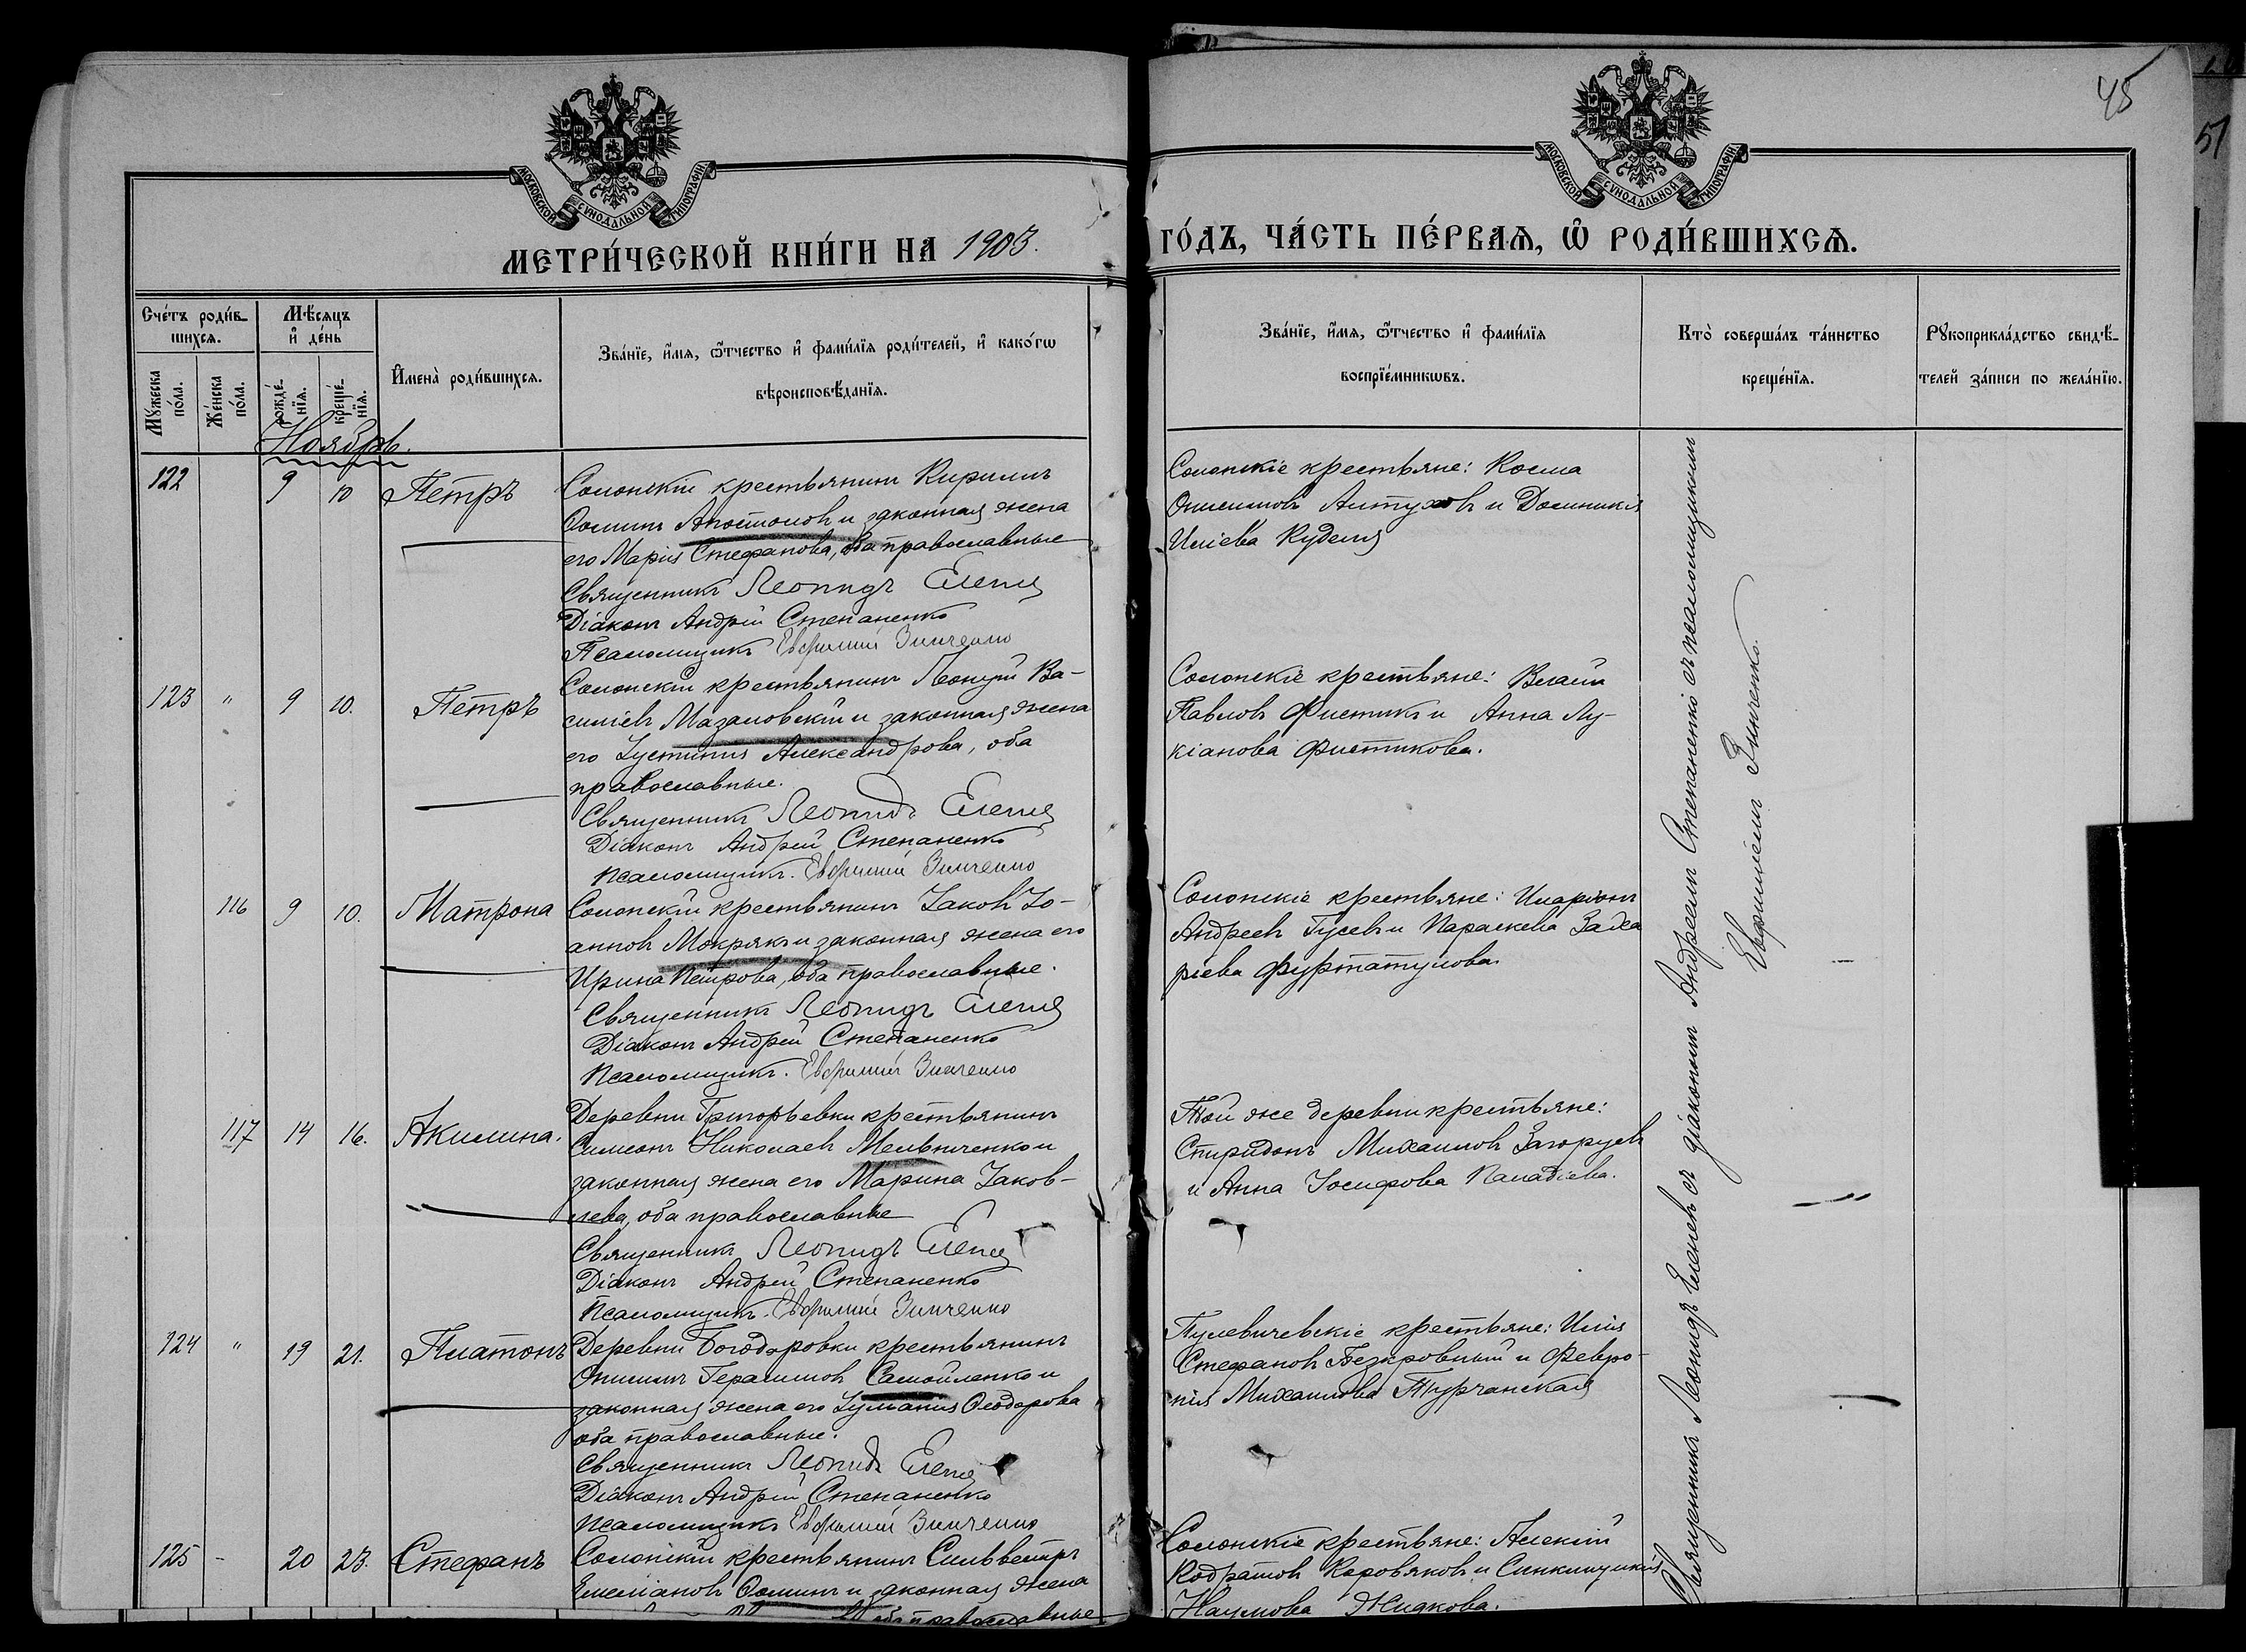 45
51
МОСКОВСКОЙ СѴНОДАЛЬНОЙ ТИПОГРАФІИ
МОСКОВСКОЙ СѴНОДАЛЬНОЙ ТИПОГРАФІИ
МЕТРИ́ЧЕСКОЙ КНИ́ГИ НА 1903.
ГО́ДЪ, ЧА́СТЬ ПЕ́РВАѦ, Ѽ РОДИ́ВШИХСѦ.
Сче́тъ роди́в-
шихсѧ.
Мѣ́сѧцъ
и҆ де́нь
И҆мена̀ роди́вшихсѧ.
Зва́нїе, и҆́мѧ, ѻ҆́тчество и҆ фами́лїѧ роди́телей, и҆ како́гѡ
вѣроисповѣ́данїѧ.
Мꙋ́жеска по́ла.
Же́нска по́ла.
рожде́-нїѧ.
креще́-нїѧ.
Зва́нїе, и҆́мѧ, ѻ҆́тчество и҆ фами́лїѧ
воспрїе́мникѡвъ.
Кто̀ соверша́лъ та́инство
креще́нїѧ.
Рꙋкоприкла́дство свидѣ́-
телей за́писи по жела́нїю.
Ноябрь.
122 9 10 Петръ
Солонскій крестьянинъ Кириллъ
Ѳоминъ Апостоловъ и законная жена
его Марія Стефанова, оба православные
Священникъ Леонидъ Еленевъ
Діаконъ Андрей Степаненко
Псаломщикъ Евфимій Зинченко
Солонскіе крестьяне: Косма
Онисимовъ Алтуховъ и Домникія
Иліева Куделя
123 " 9 10. Петръ
Солонскій крестьянинъ Лонгин Ва-
силіевъ Мазаловскій и законная жена
его Іустинія Александрова, оба
православные.
Священникъ Леонидъ Еленевъ
Діаконъ Андрей Степаненко
псаломщикъ. Евфимій Зинченко
Солонскіе крестьяне: Власій
Павловъ Фистикъ и Анна Лу-
кіанова Фистикова.
116 9 10. Матрона
Солонскій крестьянинъ Іаковъ Іо-
анновъ Мокрякъ и законная жена его
Ирина Петрова, оба православные.
Священникъ Леонидъ Еленевъ
Діаконъ Андрей Степаненко
псаломщикъ. Евфимій Зинченко
Солонскіе крестьяне: Иларіонъ
Андреевъ Гусевъ и Параскева Заха
ріева Фуртатулова.
117 14 16. Акилина.
Деревни Григорьевки крестьянинъ
Симеонъ Николаевъ Мельниченко и
законная жена его Марина Іаков-
лева, оба православные
Священникъ Леонидъ Еленевъ
Діаконъ Андрей Степаненко
Псаломщикъ. Евфимій Зинченко
Той же деревни крестьяне:
Спиридонъ Михаиловъ Загоруевъ
и Анна Іосифова Паладіева.
124 " 19 21. Платонъ
Деревни Богодаровки крестьянинъ
Онисимъ Герасимовъ Самойленко и
законная жена его Іуліанія Ѳеодорова
оба православные.
Священникъ Леонидъ Еленевъ
Діаконъ Андрей Степаненко
псаломщикъ Евфимій Зинченко
Пулевичевскіе крестьяне: Илія
Стефановъ Безкровный и Февро-
нія Михаилова Турчанская
125 - 20 23. Стефанъ
Солонскій крестьянинъ Сильвестръ
Емеліановъ Ѳоминъ и законная жена
оба православные
Солонскіе крестьяне: Алексій
Кодратовъ Коровяковъ и
Наумова Жидкова.
Священникъ Леонидъ Еленевъ съ діакономъ Андреемъ Степаненко и съ псаломщикомъ
Евфиміемъ Зинченко.